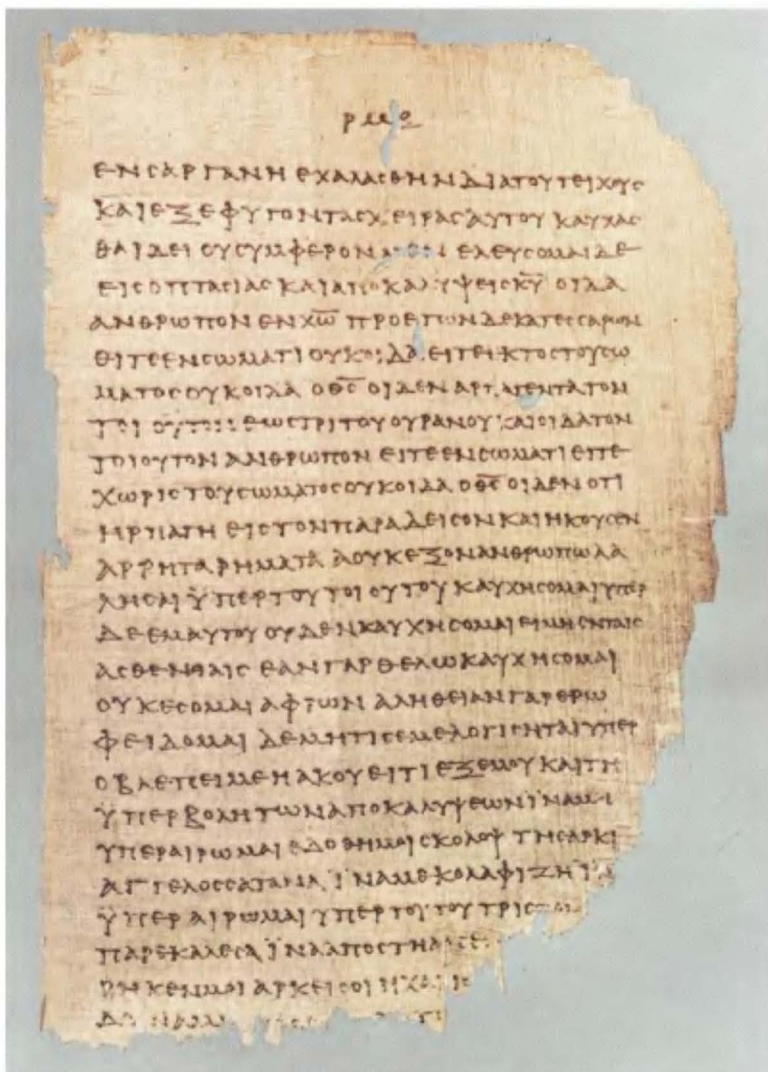 ρμθ
ΕΝ ΣΑΡΓΑΝΗ ΕΧΑΛΑΣΘΗΝ ΔΙΑ ΤΟΥ ΤΕΙΧΟΥΣ
ΚΑΙ ΕΞΕΦΥΓΟΝ ΤΑΣ ΧΕΙΡΑΣ ΑΥΤΟΥ ΚΑΥΧΑΣ
ΘΑΙ ΔΕΙ ΟΥ ΣΥΜΦΕΡΟΝ ΜΕΝ ΕΛΕΥΣΟΜΑΙ ΔΕ
ΕΙΣ ΟΠΤΑΣΙΑΣ ΚΑΙ ΑΠΟΚΑΛΥΨΕΙΣ Κ̅Υ̅ ΟΙΔΑ
ΑΝΘΡΩΠΟΝ ΕΝ Χ̅Ω̅ ΠΡΟ ΕΤΩΝ ΔΕΚΑΤΕΣΣΑΡΩΝ
ΕΙΤΕ ΕΝ ΣΩΜΑΤΙ ΟΥΚ ΟΙΔΑ ΕΙΤΕ ΕΚΤΟΣ ΤΟΥ ΣΩ
ΜΑΤΟΣ ΟΥΚ ΟΙΔΑ Ο Θ̅Σ̅ ΟΙΔΕΝ ΑΡΠΑΓΕΝΤΑ ΤΟΝ
ΤΟΙΟΥΤΟΝ ΕΩΣ ΤΡΙΤΟΥ ΟΥΡΑΝΟΥ ΚΑΙ ΟΙΔΑ ΤΟΝ
ΤΟΙΟΥΤΟΝ ΑΝΘΡΩΠΟΝ ΕΙΤΕ ΕΝ ΣΩΜΑΤΙ ΕΙΤΕ
ΧΩΡΙΣ ΤΟΥ ΣΩΜΑΤΟΣ ΟΥΚ ΟΙΔΑ Ο Θ̅Σ̅ ΟΙΔΕΝ ΟΤΙ
ΗΡΠΑΓΗ ΕΙΣ ΤΟΝ ΠΑΡΑΔΕΙΣΟΝ ΚΑΙ ΗΚΟΥΣΕΝ
ΑΡΡΗΤΑ ΡΗΜΑΤΑ Α ΟΥΚ ΕΞΟΝ ΑΝΘΡΩΠΩ ΛΑ
ΛΗΣΑΙ ΫΠΕΡ ΤΟΥ ΤΟΙΟΥΤΟΥ ΚΑΥΧΗΣΟΜΑΙ ΥΠΕΡ
ΔΕ ΕΜΑΥΤΟΥ ΟΥΔΕΝ ΚΑΥΧΗΣΟΜΑΙ ΕΙ ΜΗ ΕΝ ΤΑΙΣ
ΑΣΘΕΝΕΙΑΙΣ ΕΑΝ ΓΑΡ ΘΕΛΩ ΚΑΥΧΗΣΟΜΑΙ
ΟΥΚ ΕΣΟΜΑΙ ΑΦΡΩΝ ΑΛΗΘΕΙΑΝ ΓΑΡ ΕΡΩ
ΦΕΙΔΟΜΑΙ ΔΕ ΜΗ ΤΙΣ ΕΜΕ ΛΟΓΙΣΗΤΑΙ ΥΠΕΡ
Ο ΒΛΕΠΕΙ ΜΕ Η ΑΚΟΥΕΙ ΤΙ ΕΞ ΕΜΟΥ ΚΑΙ ΤΗ
ΫΠΕΡΒΟΛΗ ΤΩΝ ΑΠΟΚΑΛΥΨΕΩΝ ΪΝΑ ΜΗ
ΥΠΕΡΑΙΡΩΜΑΙ ΕΔΟΘΗ ΜΟΙ ΣΚΟΛΟΨ ΤΗ ΣΑΡΚΙ
ΑΓΓΕΛΟΣ ΣΑΤΑΝΑ ΪΝΑ ΜΕ ΚΟΛΑΦΙΖΗ ΪΝΑ
ΫΠΕΡΑΙΡΩΜΑΙ ΥΠΕΡ ΤΟΥΤΟΥ ΤΡΙΣ
ΠΑΡΕΚΑΛΕΣΑ ΪΝΑ ΑΠΟΣΤΗ
ΡΗΚΕΝ ΜΟΙ ΑΡΚΕΙ ΣΟΙ Η ΧΑΡΙΣ